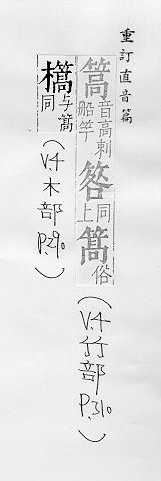 重訂直音篇
篙音高刺船竿 同上 俗
(V.4竹部P.310)
檺与篙同
(V.4木部P.290)